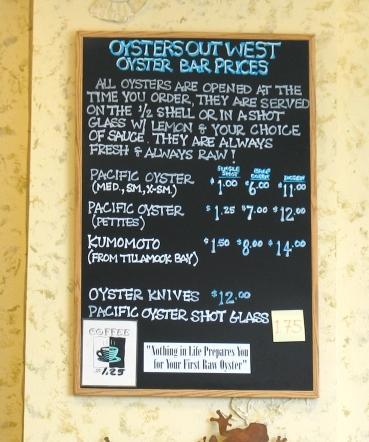 OYSTERS OUT WEST
OYSTER BAR PRICES
ALL OYSTERS ARE OPENED AT THE
TIME YOU ORDER, THEY ARE SERVED
ON THE 1/2 SHELL OR IN A SHOT
GLASS W/ LEMON & YOUR CHOICE
OF SAUCE. THEY ARE ALWAYS
FRESH & ALWAYS RAW!
SINGLE SHOT HALF DOZEN DOZEN
PACIFIC OYSTER $1.00 $6.00 $11.00
(MED., SM, X-SM.)
PACIFIC OYSTER $1.25 $7.00 $12.00
(PETTIES)
KUMOMOTO $1.50 $8.00 $14.00
(FROM TILLAMOOK BAY)
OYSTER KNIVES $12.00
PACIFIC OYSTER SHOT GLASS 1.75
COFFEE
$1.25
"Nothing in Life Prepares You
for Your First Raw Oyster"